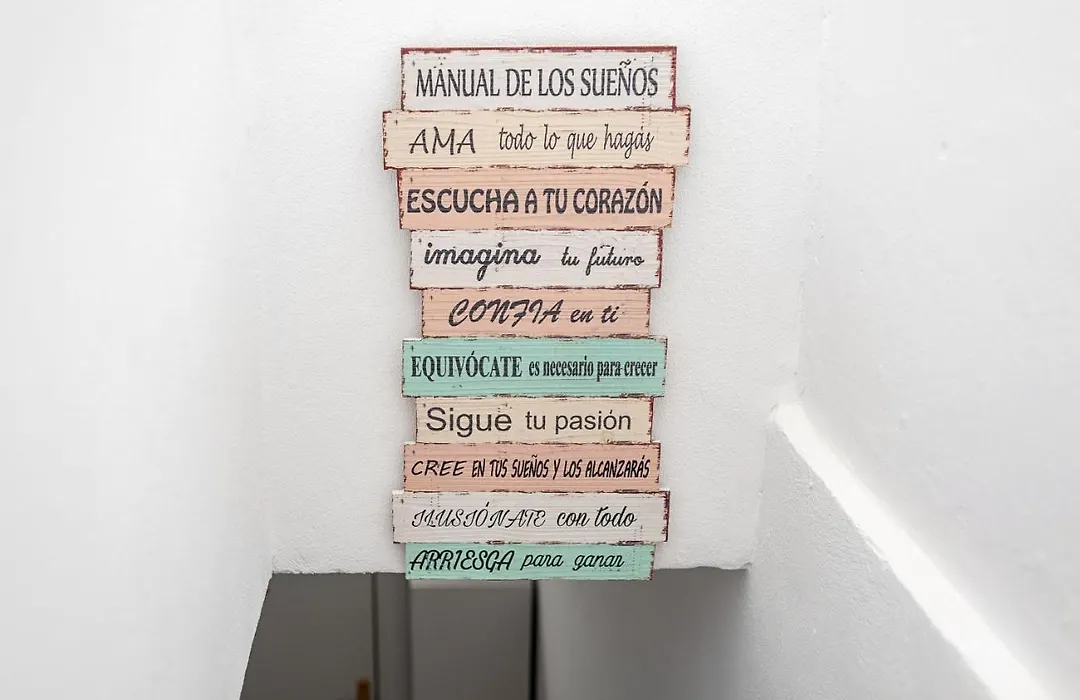 MANUAL DE LOS SUEÑOS
AMA todo lo que hagas
ESCUCHA A TU CORAZÓN
imagina tu futuro
CONFIA en ti
EQUIVÓCATE es necesario para crecer
Sigue tu pasión
CREE EN TUS SUEÑOS Y LOS ALCANZARÁS
ILUSIÓNATE con todo
ARRIESGA para ganar